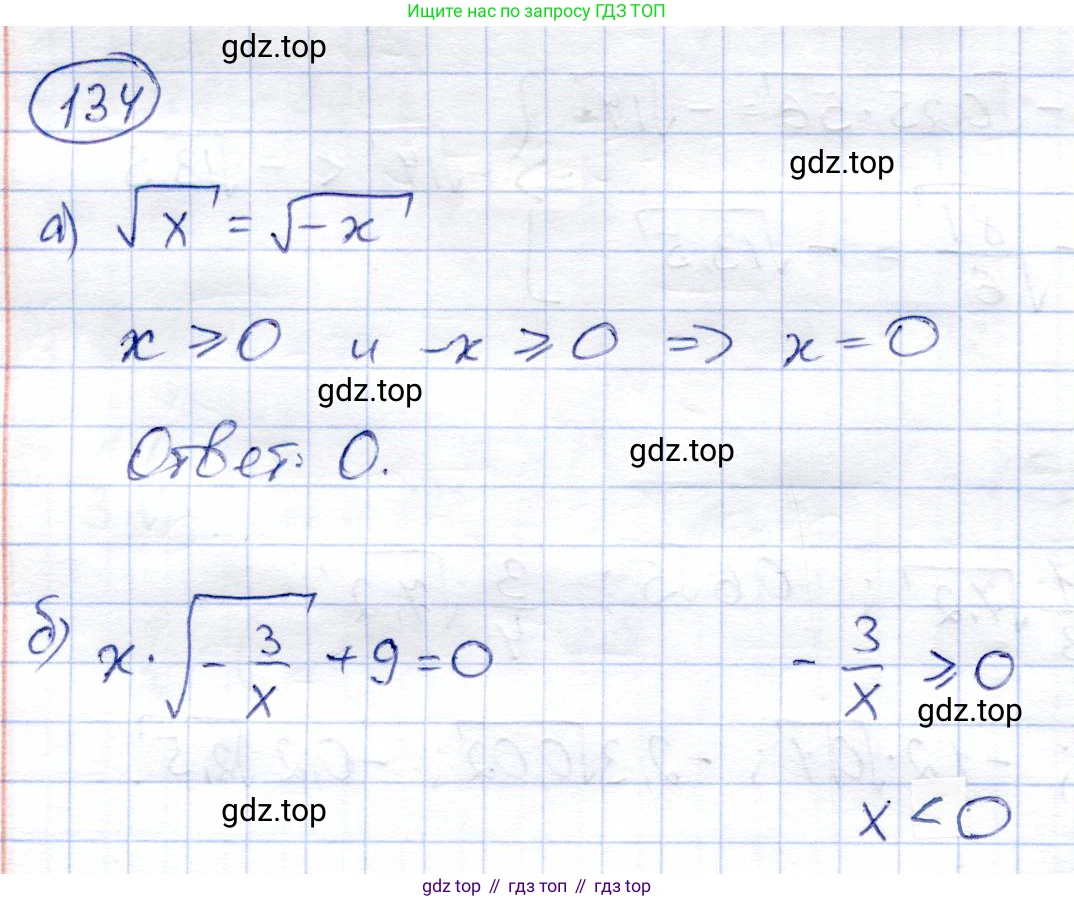 Ищите нас по запросу ГДЗ ТОП
gdz.top
134
gdz.top
а) √x = √-x
x ⩾ 0 и -x ⩾ 0 => x = 0
gdz.top
Ответ: 0.
gdz.top
б) x · √(- 3/x) + 9 = 0
- 3/x ⩾ 0
gdz.top
gdz.top
x < 0
gdz top // гдз топ // гдз top